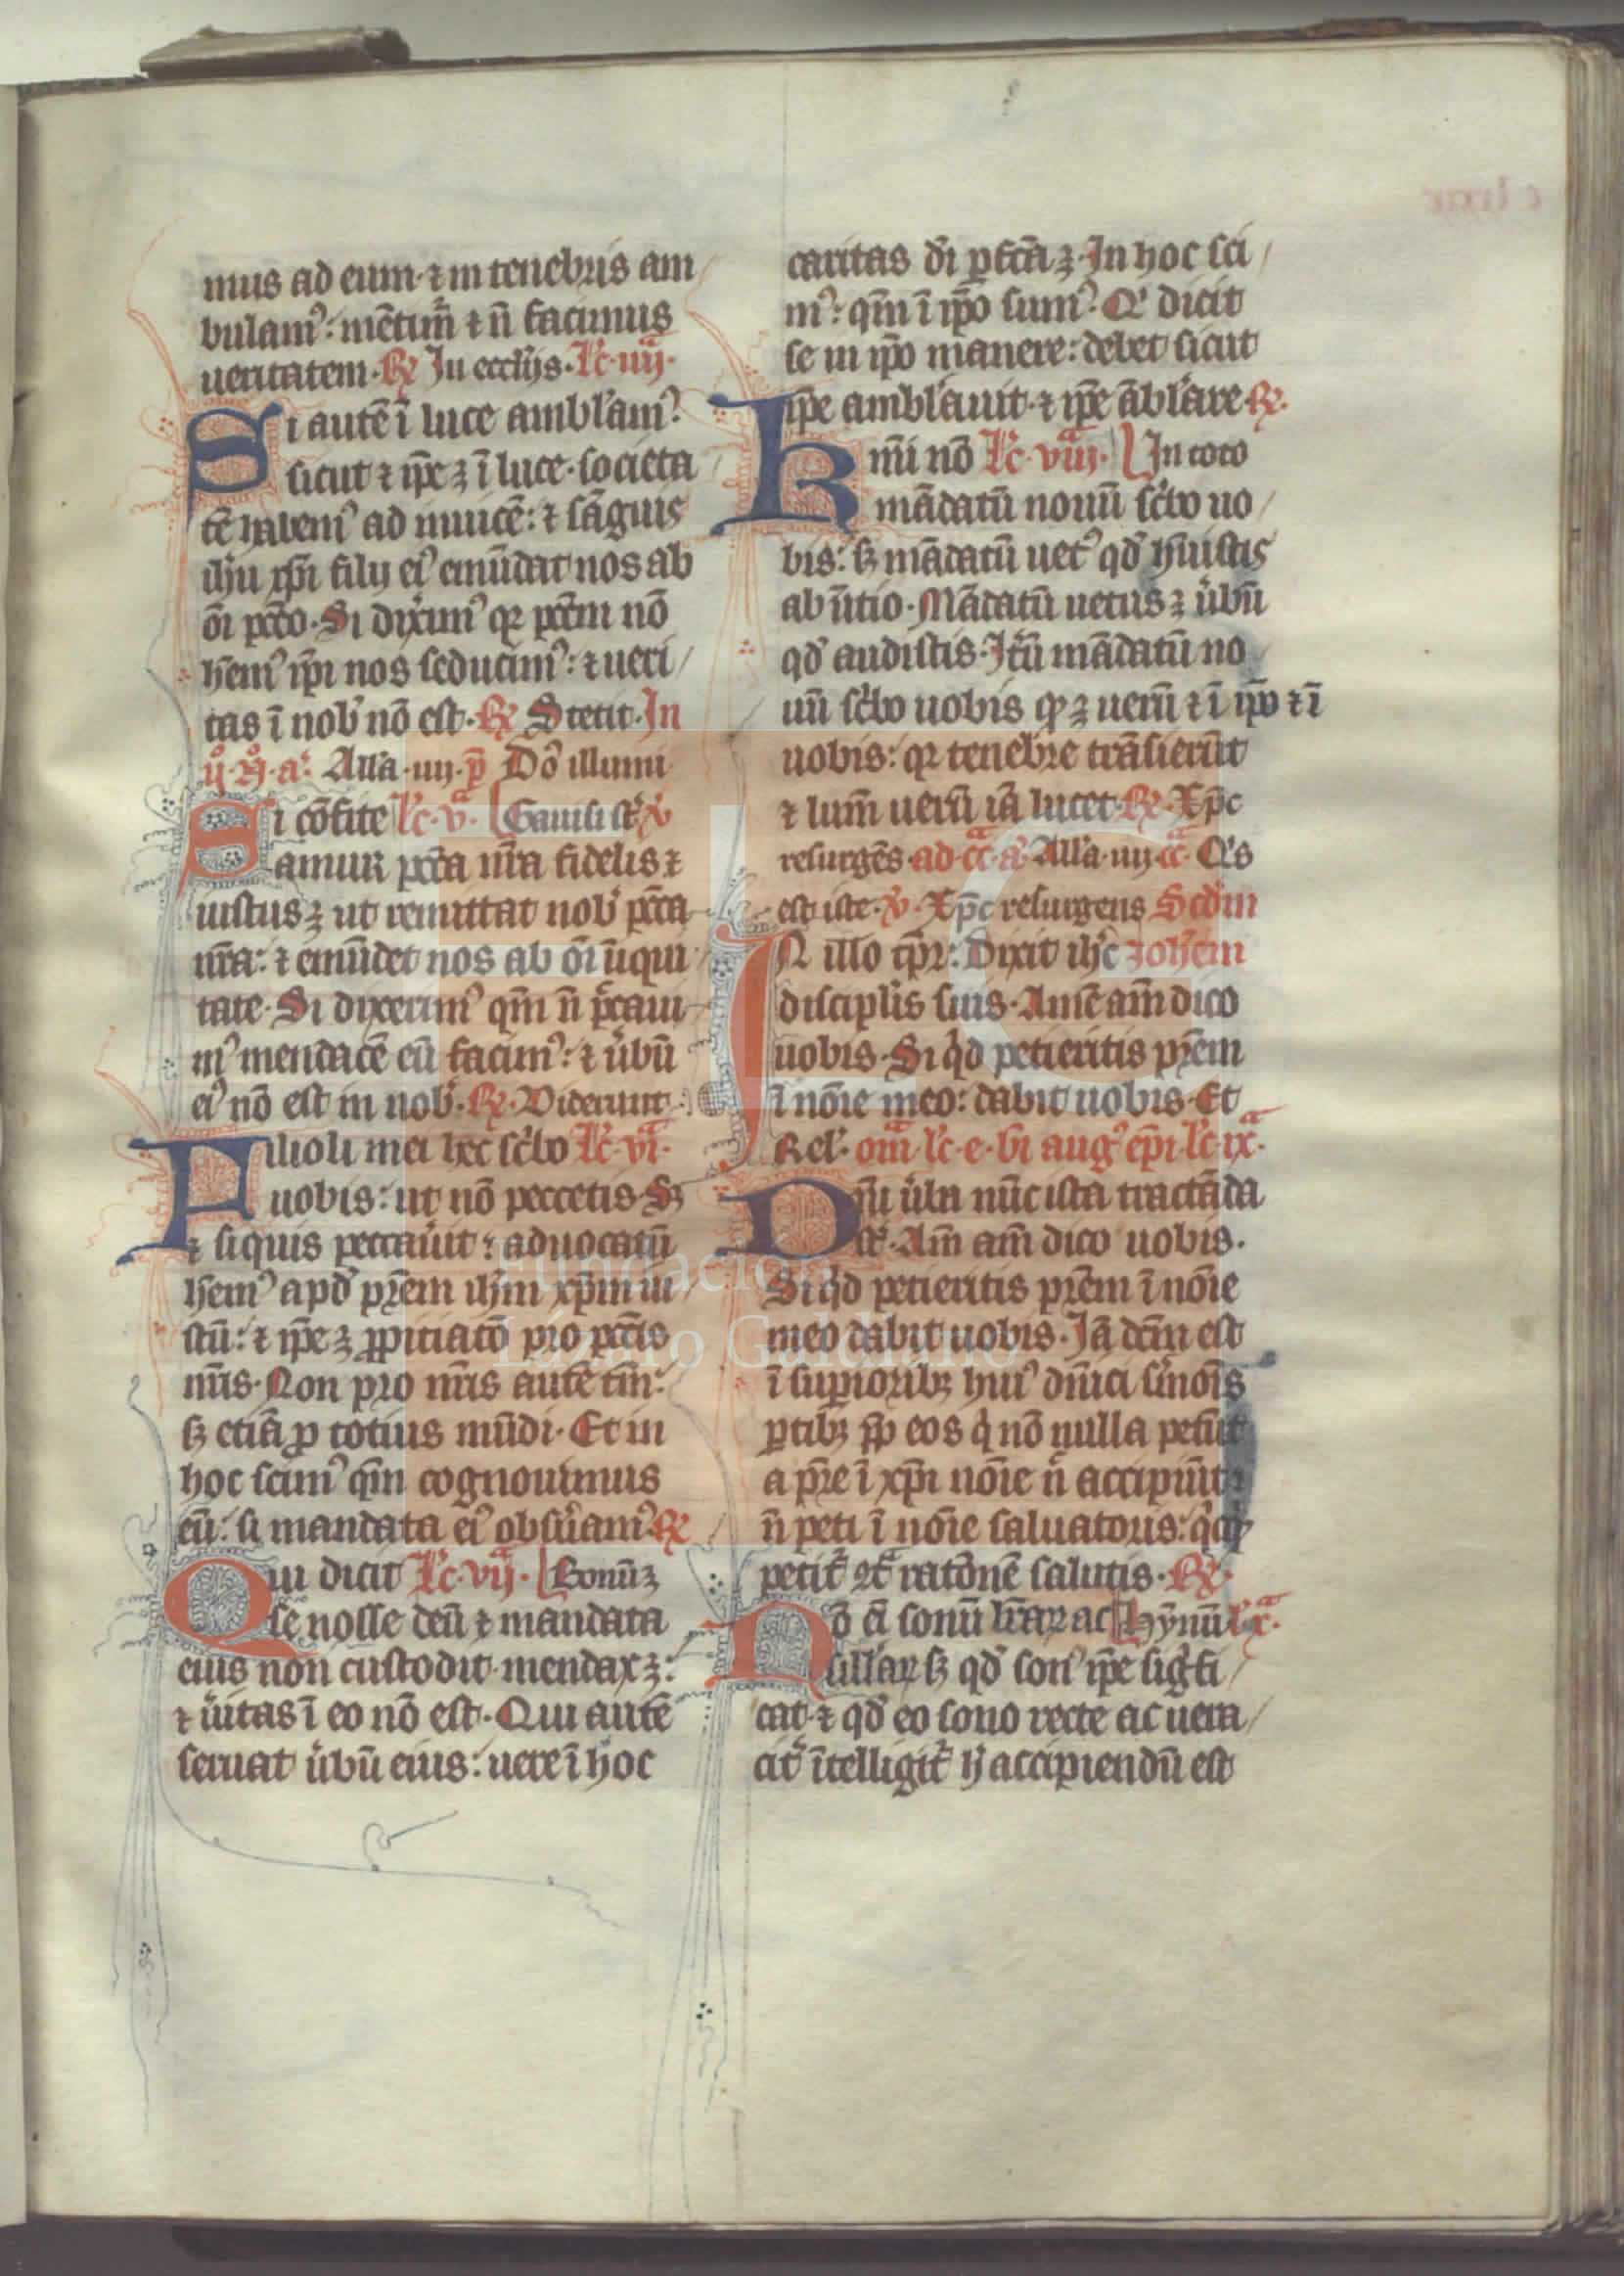 mus ad eum ⁊ in tenebris am
bulam᷒: mẽtim̃ ⁊ ñ facimus
ueritatem. R̸ In eccl̃ijs. Lc̃. iiij.
Si autẽ ĩ luce ambl'am᷒
sicut ⁊ ip̃e ꝫ ĩ luce. societa
tẽ habem᷒ ad inuicẽ: ⁊ sãguis
ih̃u xp̃i filij ei᷒ emũdat nos ab
õi pc̃cõ. Si dixim᷒ qꝛ pc̃cm nõ
hẽm᷒ ip̃i nos seducim᷒: ⁊ ueri
tas ĩ nob̃ nõ est. R̸ Stetit. In
Alla. iiij. p̃ Dõ illumi
Si cõfite lc̃. v. Gauisi st̃ v̾
amur pc̃ca nr̃a fidelis ⁊
iustus ꝫ ut remittat nob̃ pc̃ca
nr̃a: ⁊ emũdet nos ab õi ĩiqui
tate. Si dixerim᷒ qm̃ ñ pc̃caui
m᷒ mendacẽ eũ facim᷒: ⁊ ũbũ
ei᷒ nõ est in nob̃. R̸. Viderunt.
Filioli mei hec sc̾bo Lc̃. vi.
uobis: ut nõ peccetis. Sꝫ
⁊ siquis peccauit: aduocatũ
hẽm᷒ apd̾ pr̃em ih̃m xp̃m iu
stũ: ⁊ ip̃e ꝫ ꝓpitiatõ pro pc̃cis
nr̃is. Non pro nr̃is autẽ tm̃:
sꝫ etiã ꝓ totius mũdi. Et in
hoc scim᷒ qm̃ cognouimus
eũ: si mandata ei᷒ obsũam᷒. R̸
Qui dicit Lc̃. vij. Bonũ ꝫ
se nosse deũ ⁊ mandata
eius non custodit. mendax ꝫ:
⁊ ũitas ĩ eo nõ est. Qui autẽ
seruat ũbũ eius: uere ĩ hoc
caritas dĩ ꝑfcã ꝫ. In hoc sci
m᷒: qm̃ ĩ ip̃o sum᷒. Q̾ dicit
se in ip̃o manere: debet sicut
ip̃e ambl'auit. ⁊ ip̃e ãbl'are R̸.
K̃mi nõ Lc̃. viij. In toto
mãdatũ nouũ sc̾bo uo
bis: sꝫ mãdatũ uet᷒ qd̾ hũistis
ab ĩitio. Mãdatũ uetus ꝫ ũbũ
qd̾ audistis. Itũ mãdatũ no
uũ sc̾bo uobis qd̾ ꝫ uerũ ⁊ ĩ ip̃o ⁊ ĩ
uobis: qꝛ tenebre trãsierũt
⁊ lum̃ uerũ iã lucet. R̸. Xp̃c
resurgẽs ad cc̃. a᷒. Alla. iiij. cc̃. Q̾s
est iste. v̾. Xp̃c resurgens Scd̾m
In illo tp̃r: Dixit ih̃c iohẽm
discipl̾is suis. Amẽ am̃ dico
uobis. Si q̾d petieritis pr̃em
ĩ nõie meo: dabit uobis. Et
Rel̾. om̃l̾c̃. e. bi aug᷒ ep̃i. lc̃. ix.
Dñi ũba nũc ista tractãda
st̃. Am̃ am̃ dico uobis.
Si q̾d petieritis pr̃em ĩ nõie
meo dabit uobis. Iã dc̃m est
ĩ supioribꝫ hui᷒ dñici s̾mõis
ꝑtibꝫ ꝓp eos q̾ nõ nulla petũt
a pr̃e ĩ xp̃i nõie ñ accipiũt
ñ peti ĩ nõie saluatoris: q̾cq̾d
petit̾ ꝯt̾ ratõnẽ salutis. R̸.
Nõ ẽ sonũ lr̃aꝝ ac Hỹnũ l̾. x.
sillaꝝ sꝫ qd̾ son᷒ ip̃e sig̾fi
cat. ⁊ qd̾ eo sono recte ac uera
cit̾ ĩtelligit̾ h̾ accipiendũ est